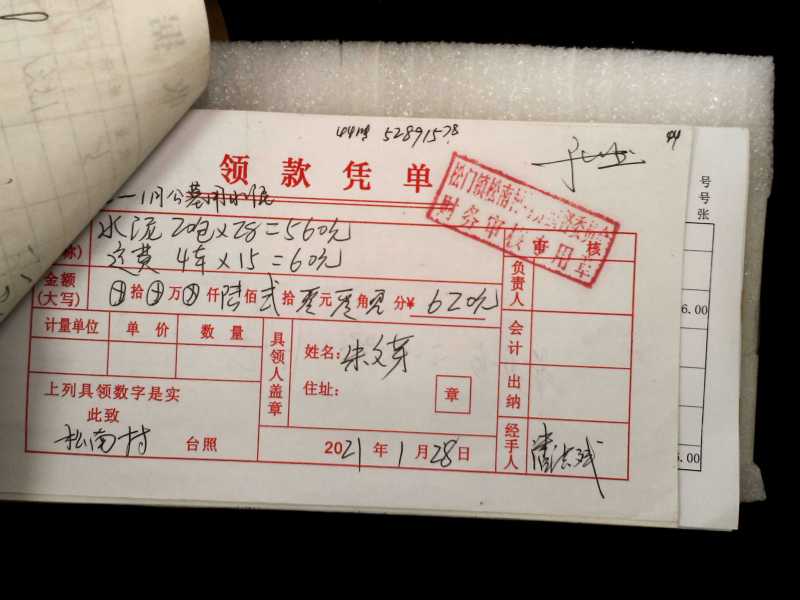 44
52891578
领款凭单
1月公墓用水泥
水泥 20包×28=560元
运费 4车×15=60元
松门镇松南
财务审核专用章
审核
金额
(大写)
拾 万 仟 陆 佰 贰 拾 零 元 零 角 零 分 ¥ 620元
负责人
计量单位 单价 数量
具领人盖章
姓名: 朱文芽
会计
住址:
章
上列具领数字是实
此致
出纳
松南村 台照
2021年1月28日
经手人
号
号
张
6.00
5.00